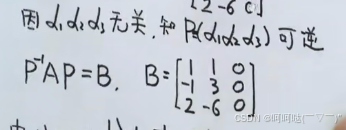 [2 -6 c]
因α₁α₂α₃无关,知 P=(α₁α₂α₃)可逆
P⁻¹AP=B, B=[1 1 0
-1 3 0
2 -6 0]
CSDN @呵呵哒(￣▽￣)"